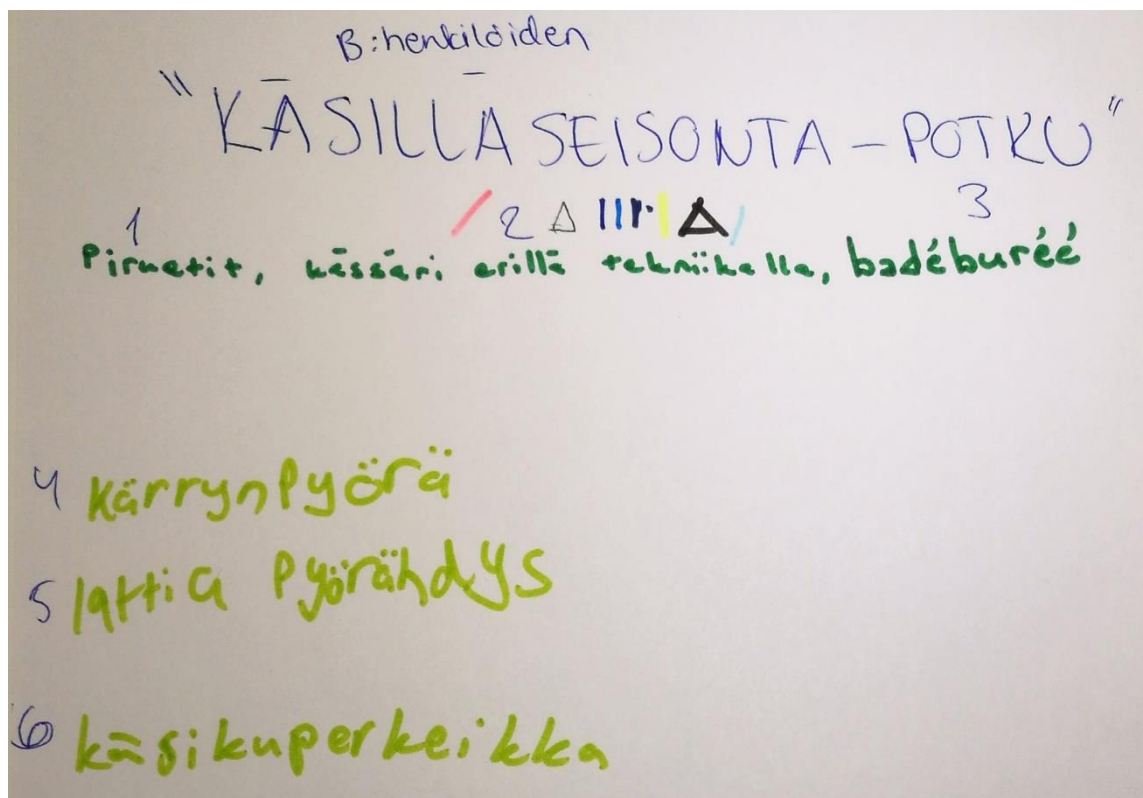 B:henkilöiden
"KÄSILLÄ SEISONTA – POTKU"
1 2 3
Piruetit, kässäri erillä tekniikalla, badéburéé
4 kärrynPyörä
5 lattia Pyörähdys
6 käsikuperkeikka